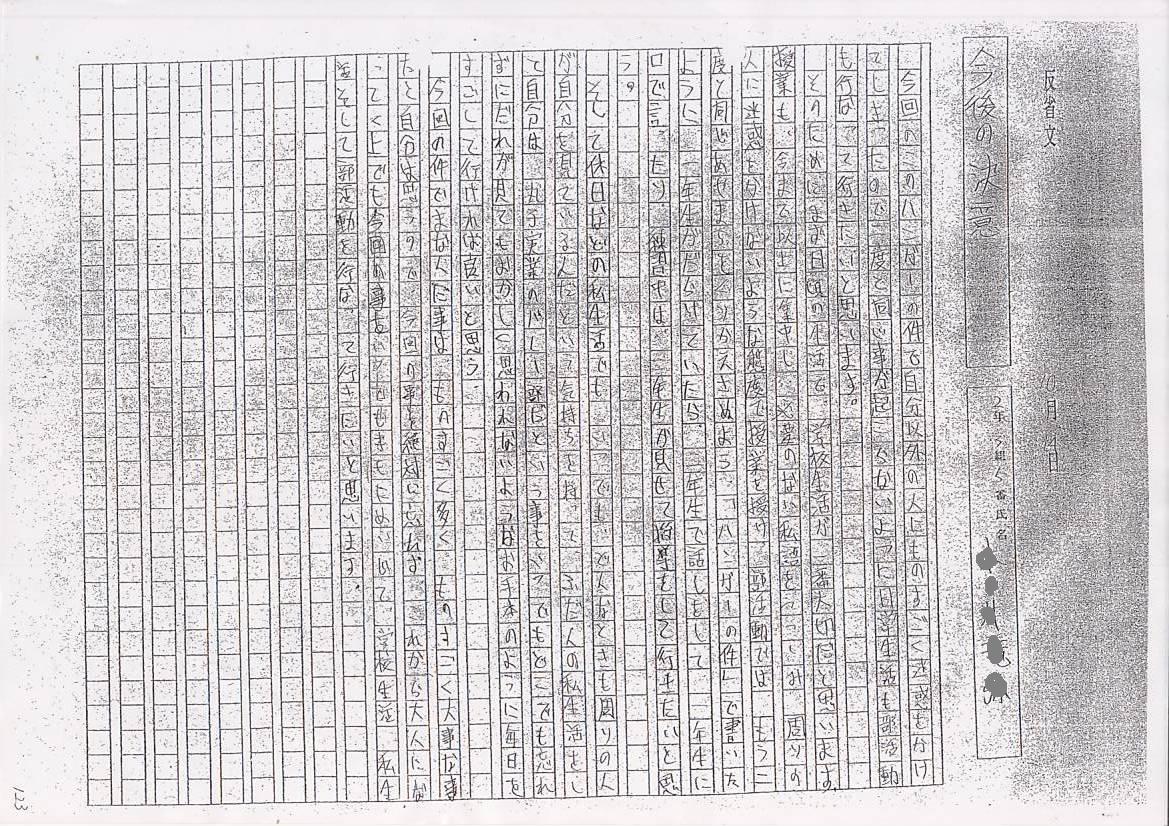 反省文 10月14日
今後の決意
2年 組 番氏名
今回のこのハンバーの件で自分以外の人にものすごく迷惑をかけ
てしまったので二度と同じ事を起こさないように日常生活も部活動
も行なって行きたいと思います。
そのためにまず日頃の生活で、学校生活が一番大切だと思います。
授業も、今まで以上に集中し、必要のない私語をつつしみ、周りの
人に迷惑をかけないような態度で授業を授け、部活動では、もう二
度と同じあやまちをくりかえさぬよう、「ハンバーの件」で書いた
ように、一年生がだらけていたら、二年生で話しをして、一年生に
口で言ったり、練習中は、二年生が見せて指導をして行きたいと思
う。
そして休日などの私生活でも、いつでも、どんなときも周りの人
が自分を見ているんだという気持ちを持って、ふだん人の私生活をし
て自分は、丸子実業のバレー部だという事をいつでもどこでも忘れ
ずにだれが見てもおかしく思われないようなお手本のように毎日を
すごして行ければ良いと思う。
今回の件でまなんだ事は、とてもすごく多く、ものすごく大事な事
だと自分は思うので、今回の事を絶対に忘れず、これから大人にな
って行く上でも今回の事をいつでもきもにめいじて、学校生活、私生
活そして部活動を行なって行きたいと思います。
123